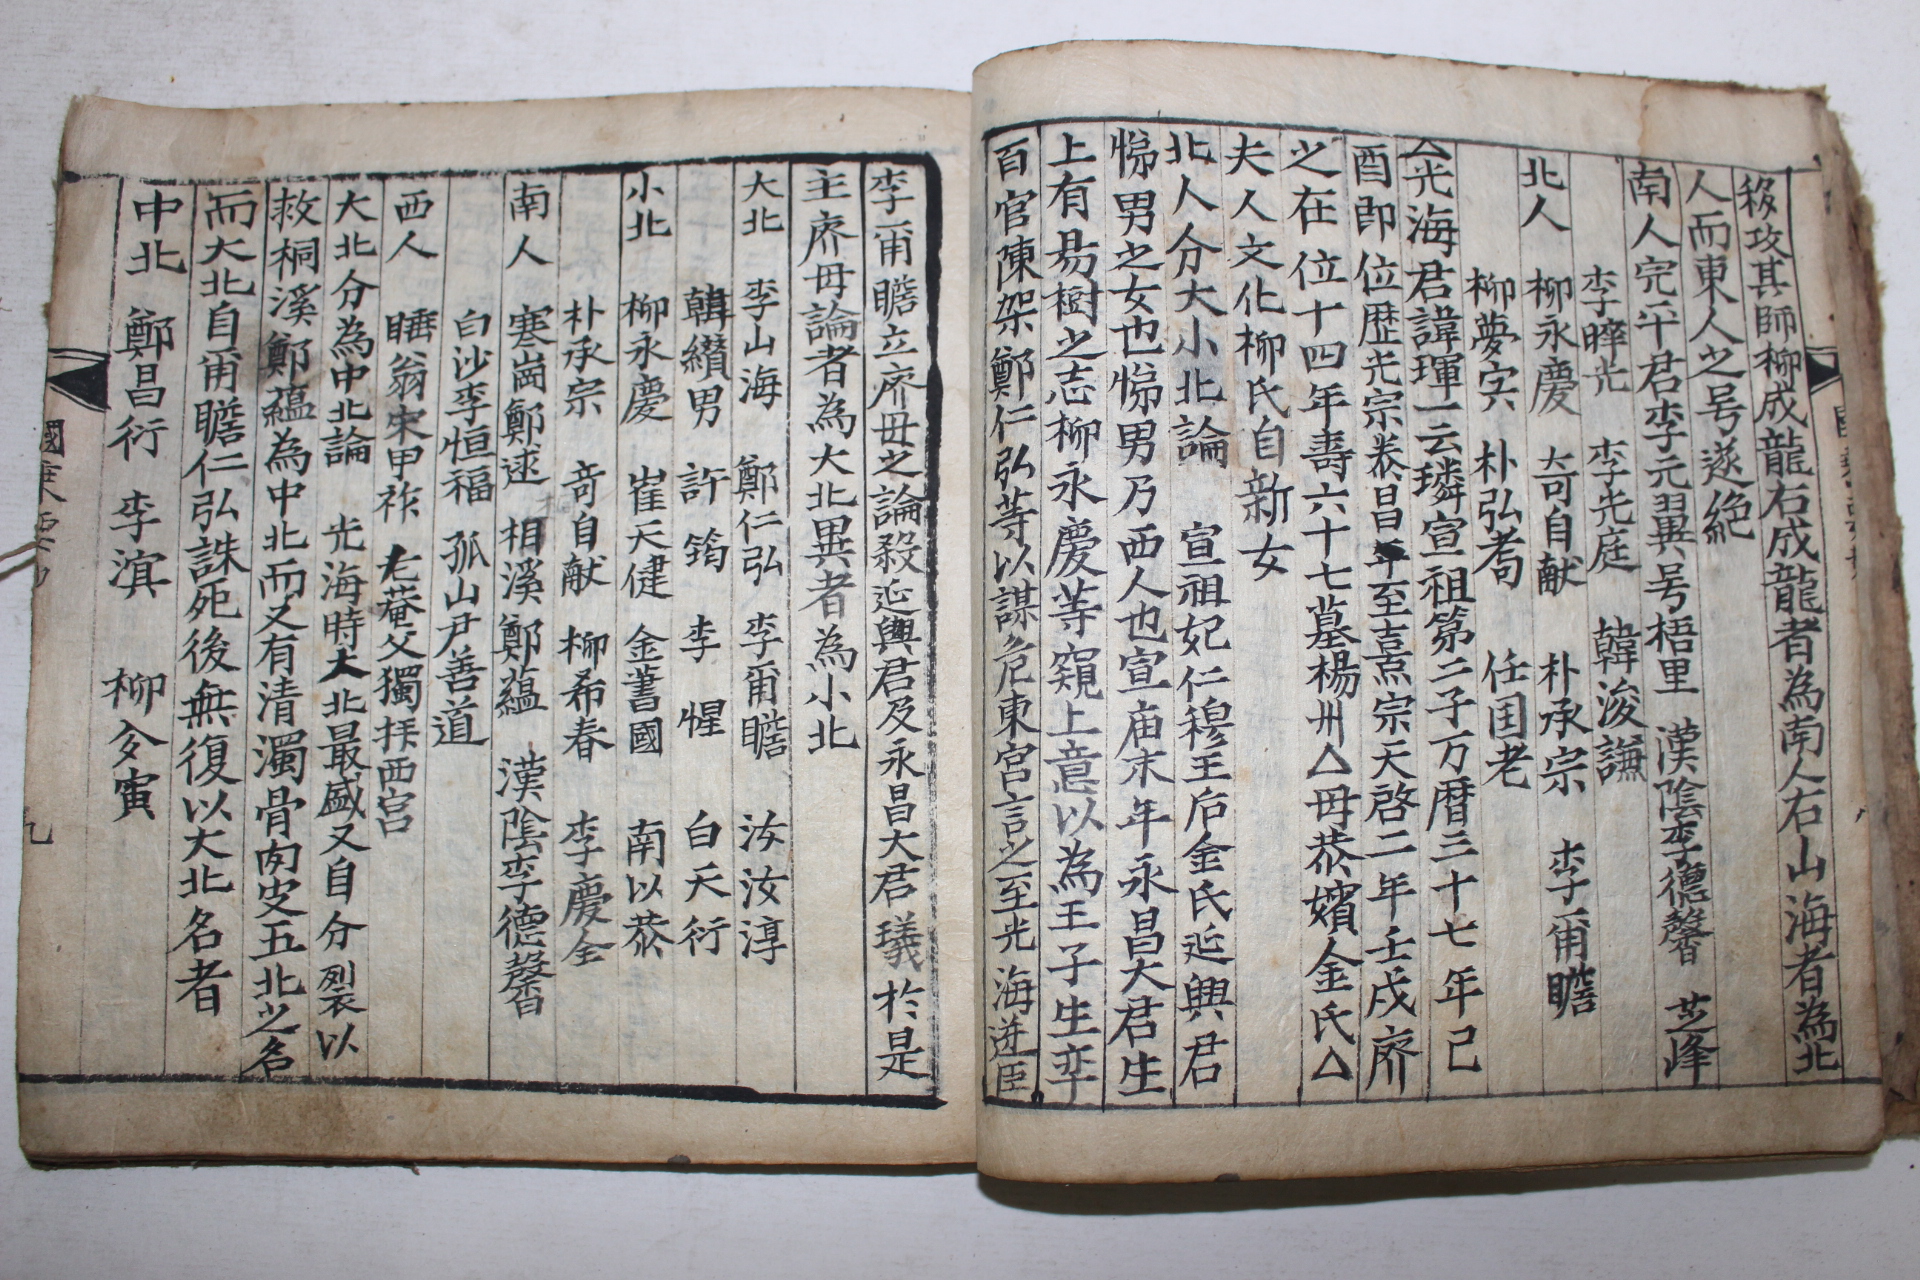 移攻其師柳成龍右成龍者為南人右山海者為北
人而東人之号遂絶
南人 完平君李元翼号梧里 漢陰李德馨 芝峰
李睟光 李光庭 韓浚謙
北人 柳永慶 奇自献 朴承宗 李甭瞻
柳夢寅 朴弘耇 任囯老
△光海君諱琿一云璘宣祖第二子万曆三十七年己
酉即位歴光宗泰昌年至熹宗天啓二年壬戌廃
之在位十四年壽六十七墓楊州△母恭嬪金氏△
夫人文化柳氏自新女
北人分大小北論 宣祖妃仁穆王后金氏延興君
悌男之女也悌男乃西人也宣庙末年永昌大君生
上有易樹之志柳永慶䓁窺上意以為王子生幸
百官陳架鄭仁弘䓁以謀危東宮言之至光海逆臣
李甭瞻立廃毋之論殺延興君及永昌大君㼁於是
主廃毋論者為大北異者為小北
大北 李山海 鄭仁弘 李甭瞻 汝淳
韓纘男 許筠 李惺 白天衍
小北 柳永慶 崔天健 金藎國 南以恭
朴承宗 奇自献 柳希春 李慶全
南人 寒崗鄭逑 桐溪鄭蘊 漢陰李德馨
白沙李恒福 孤山尹善道
西人 睡翁宋甲祚 老菴父獨拜西宮
大北分為中北論 光海時大北最盛又自分裂以
救桐溪鄭蘊為中北而又有清濁骨肉皮五北之名
而大北自甭瞻仁弘誅死後無復以大北名者
中北 鄭昌衍 李溟 柳夢寅
國乗
九